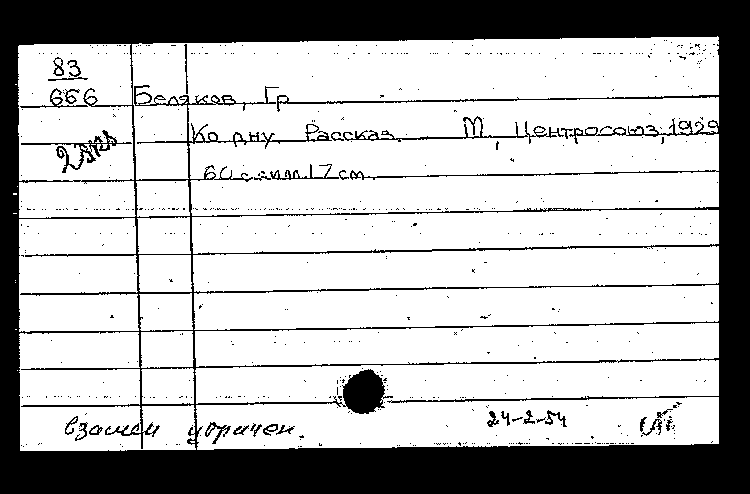 83
666 Беляков, Гр
2 экз Ко дну. Рассказ. М, Центросоюз, 1929
60 с. с илл. 17 cm.
взамен утрачен. 24-2-54